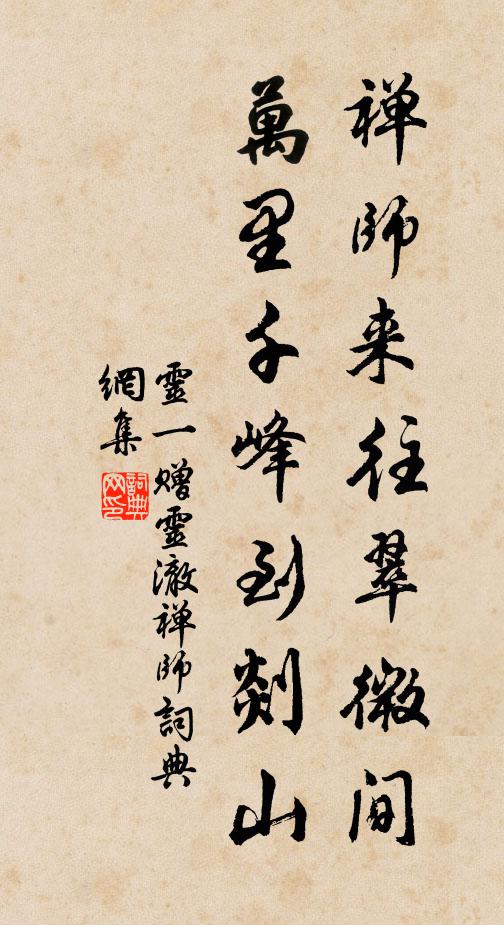 禅師来往翠微间
萬里千峰到剡山
靈一赠靈澈禅師詞典
網集
詞典网印